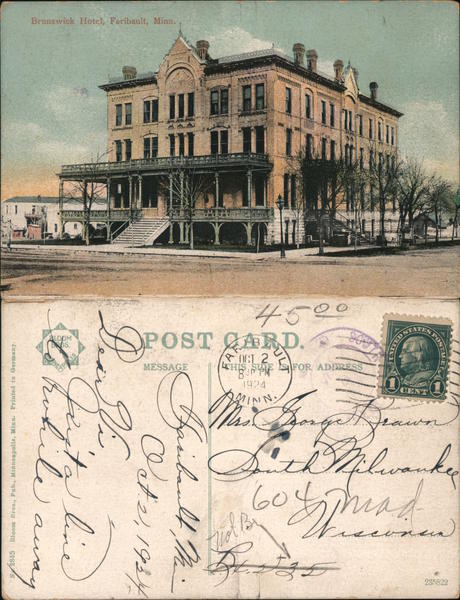 Brunswick Hotel, Faribault, Minn.
45.00
POST CARD.
MESSAGE
THIS SIDE IS FOR ADDRESS
BLOOM BROS.
FARIBAULT
OCT 2
8 PM
1924
MINN.
UNITED STATES POSTAGE
1 CENT 1
Faribault, M.
Oct 2, 1924
Dear Sis
Just a line
to while away
Mrs. George Brawn
South Milwaukee
604 Mad
Wisconsin
235822
Bloom Bros. Pub. Minneapolis, Minn. Printed in Germany.